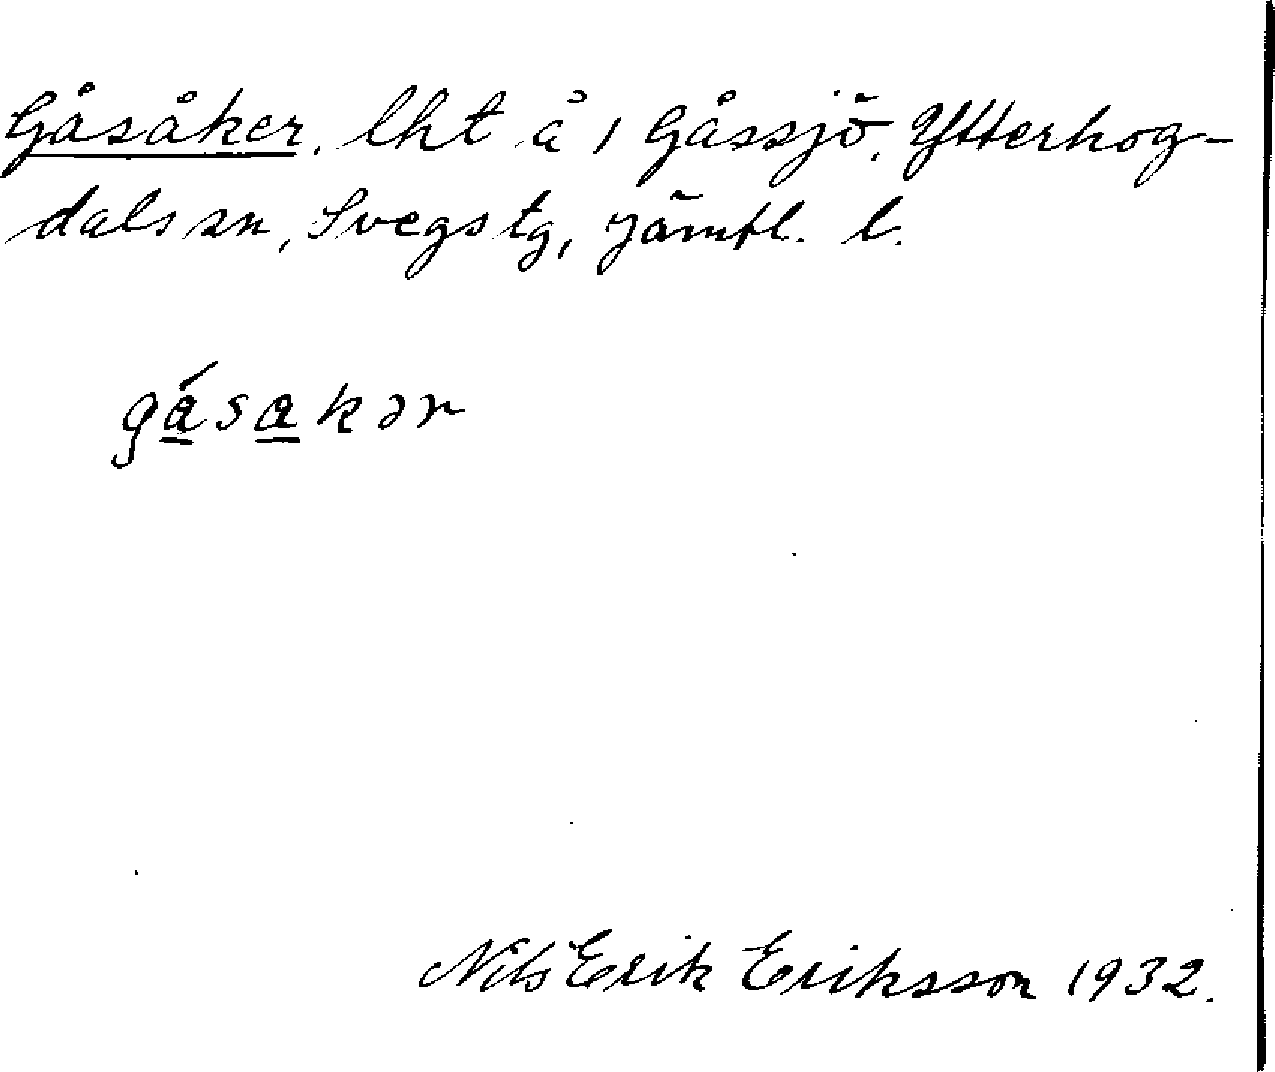 Gåsåker, lht å 1 Gåssjö, Ytterhog-
dals sn, Svegs tg, Jämtl. l.
gá̱sa̱kər
Nils Erik Eriksson 1932.